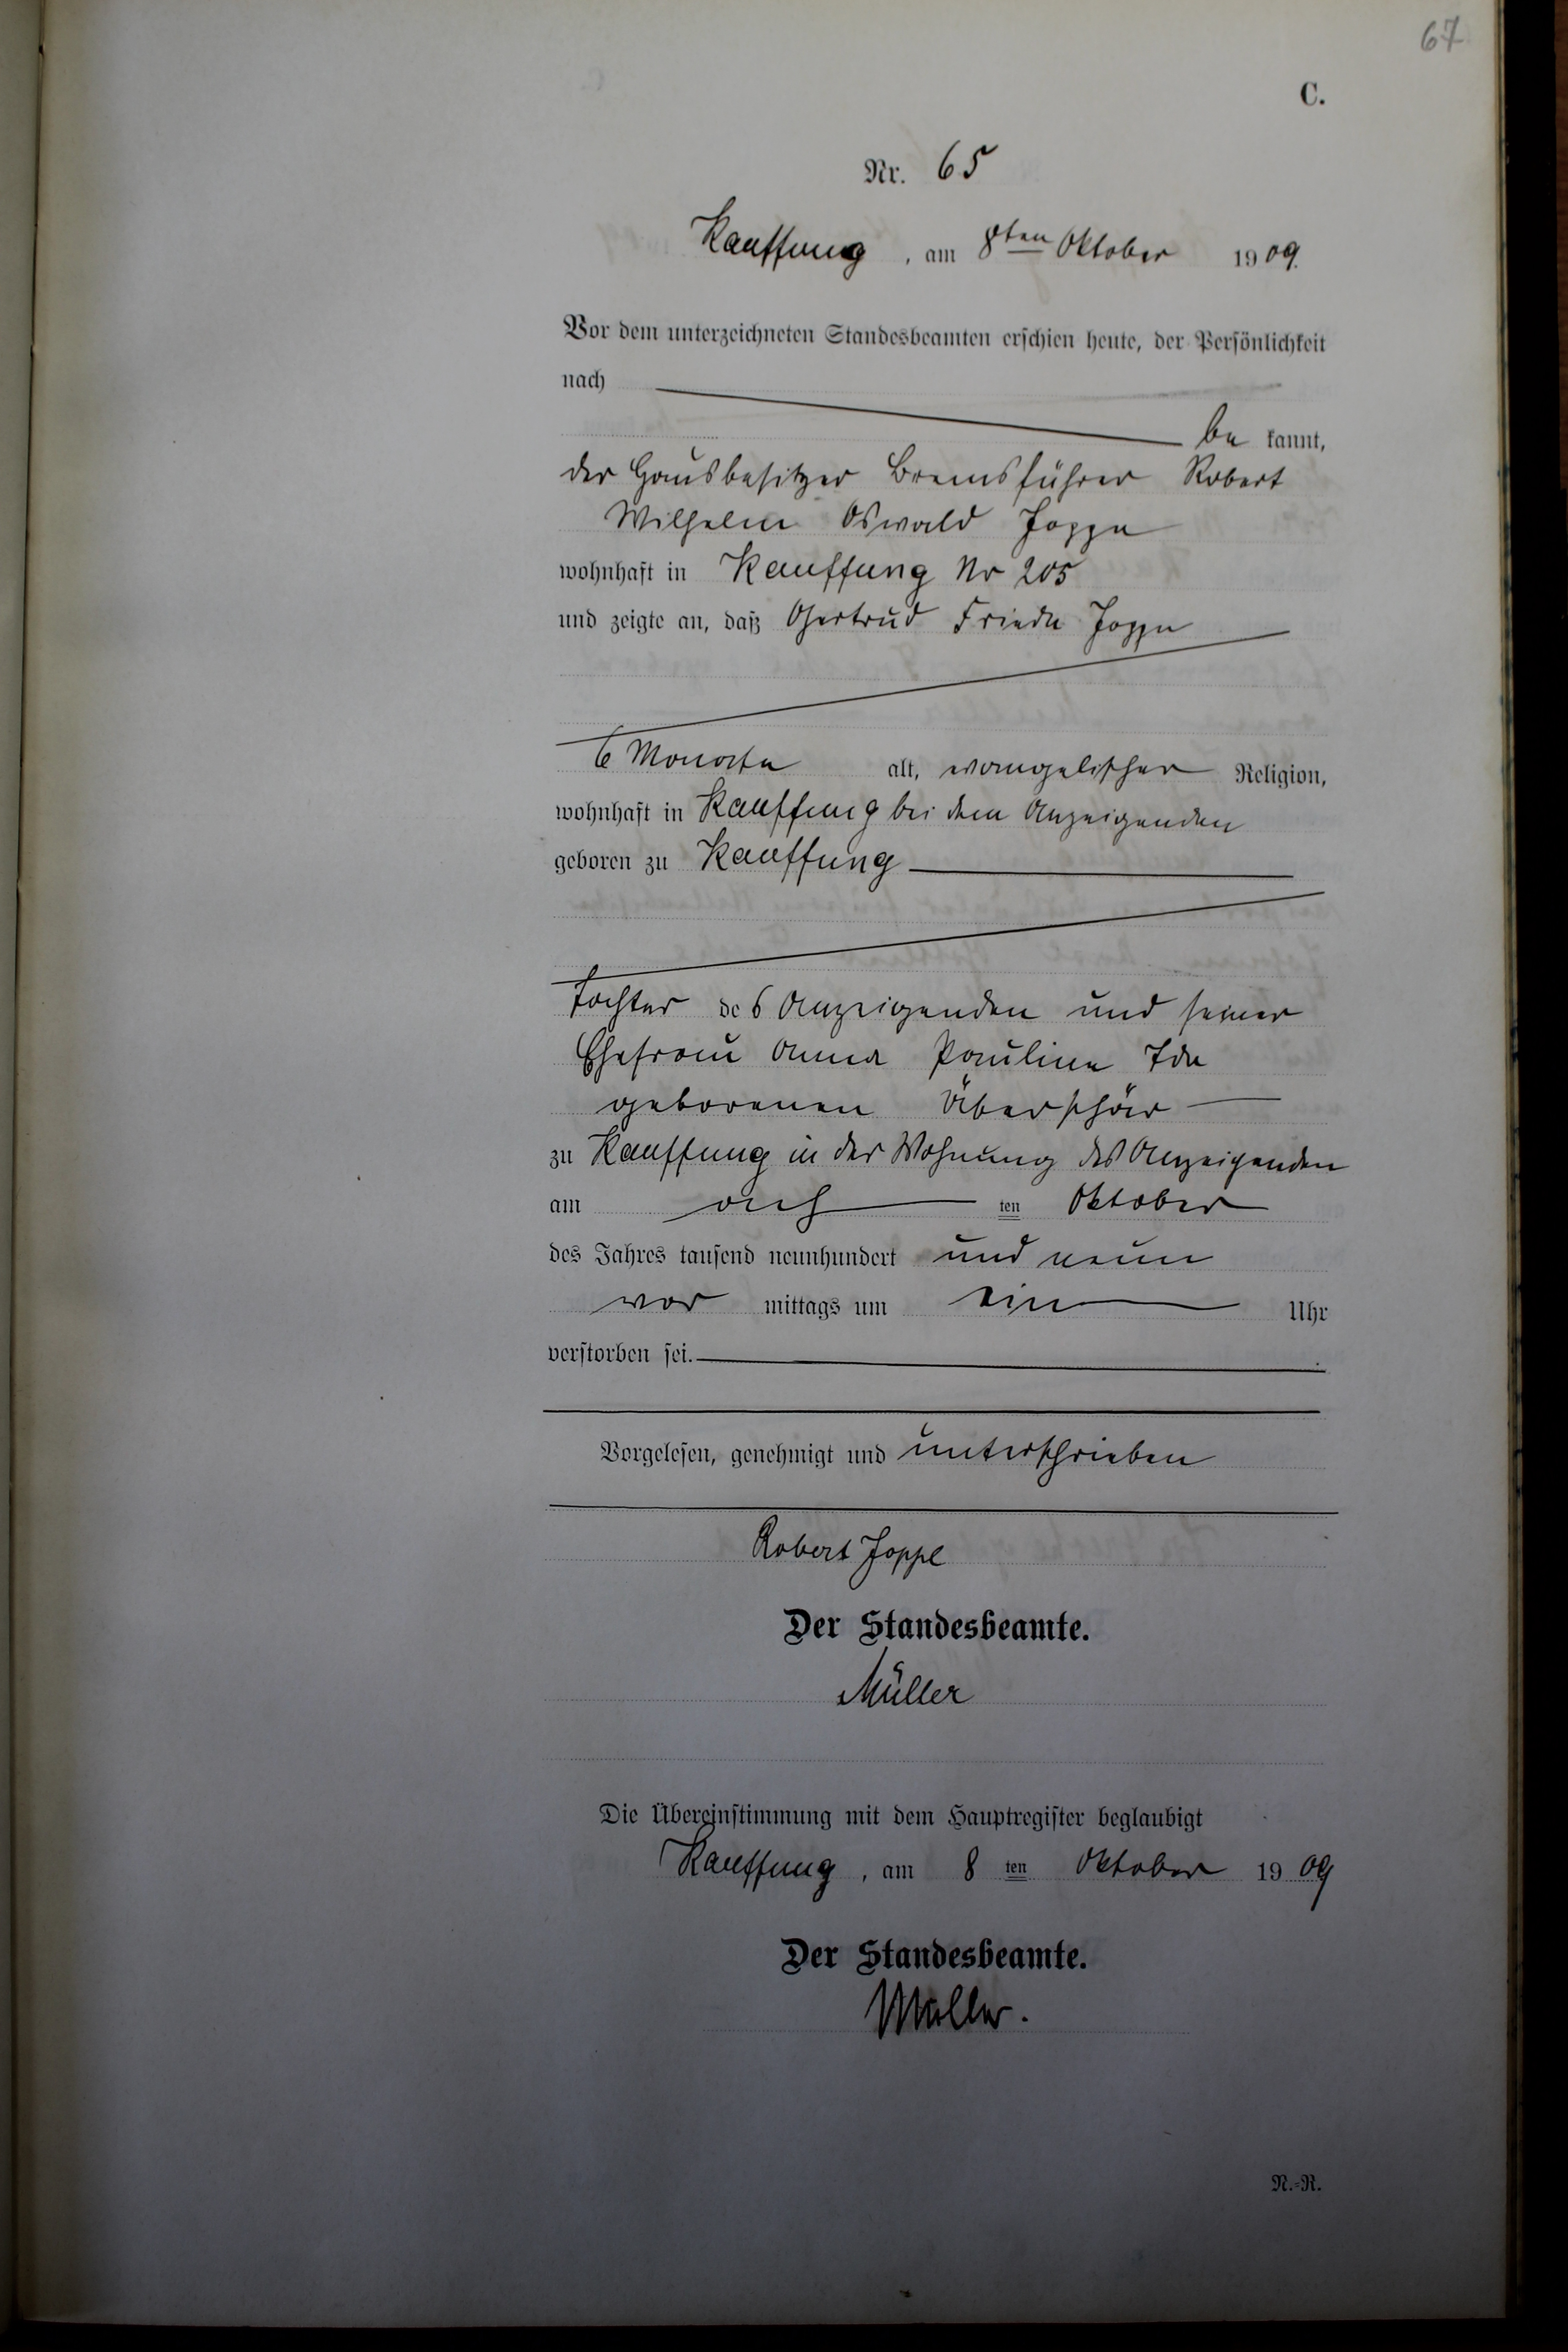 67
C.
Nr. 65
Kauffung, am 8ten Oktober 1909.
Vor dem unterzeichneten Standesbeamten erschien heute, der Persönlichkeit
nach
be kannt,
der Hausbesitzer Bremsführer Robert
Wilhelm Oswald Joppe
wohnhaft in Kauffung Nr 205
und zeigte an, daß Gertrud Frieda Joppe
6 Monate alt, evangelischer Religion,
wohnhaft in Kauffung bei dem Anzeigenden
geboren zu Kauffung
Tochter des Anzeigenden und seiner
Ehefrau Anna Pauline Ida
geborenen Überschär
zu Kauffung in der Wohnung des Anzeigenden
am ach ten Oktober
des Jahres tausend neunhundert und neun
vor mittags um ein Uhr
verstorben sei.
Vorgelesen, genehmigt und unterschrieben
Robert Joppe
Der Standesbeamte.
Müller
Die Übereinstimmung mit dem Hauptregister beglaubigt
Kauffung, am 8 ten Oktober 1909
Der Standesbeamte.
Müller.
N.-R.